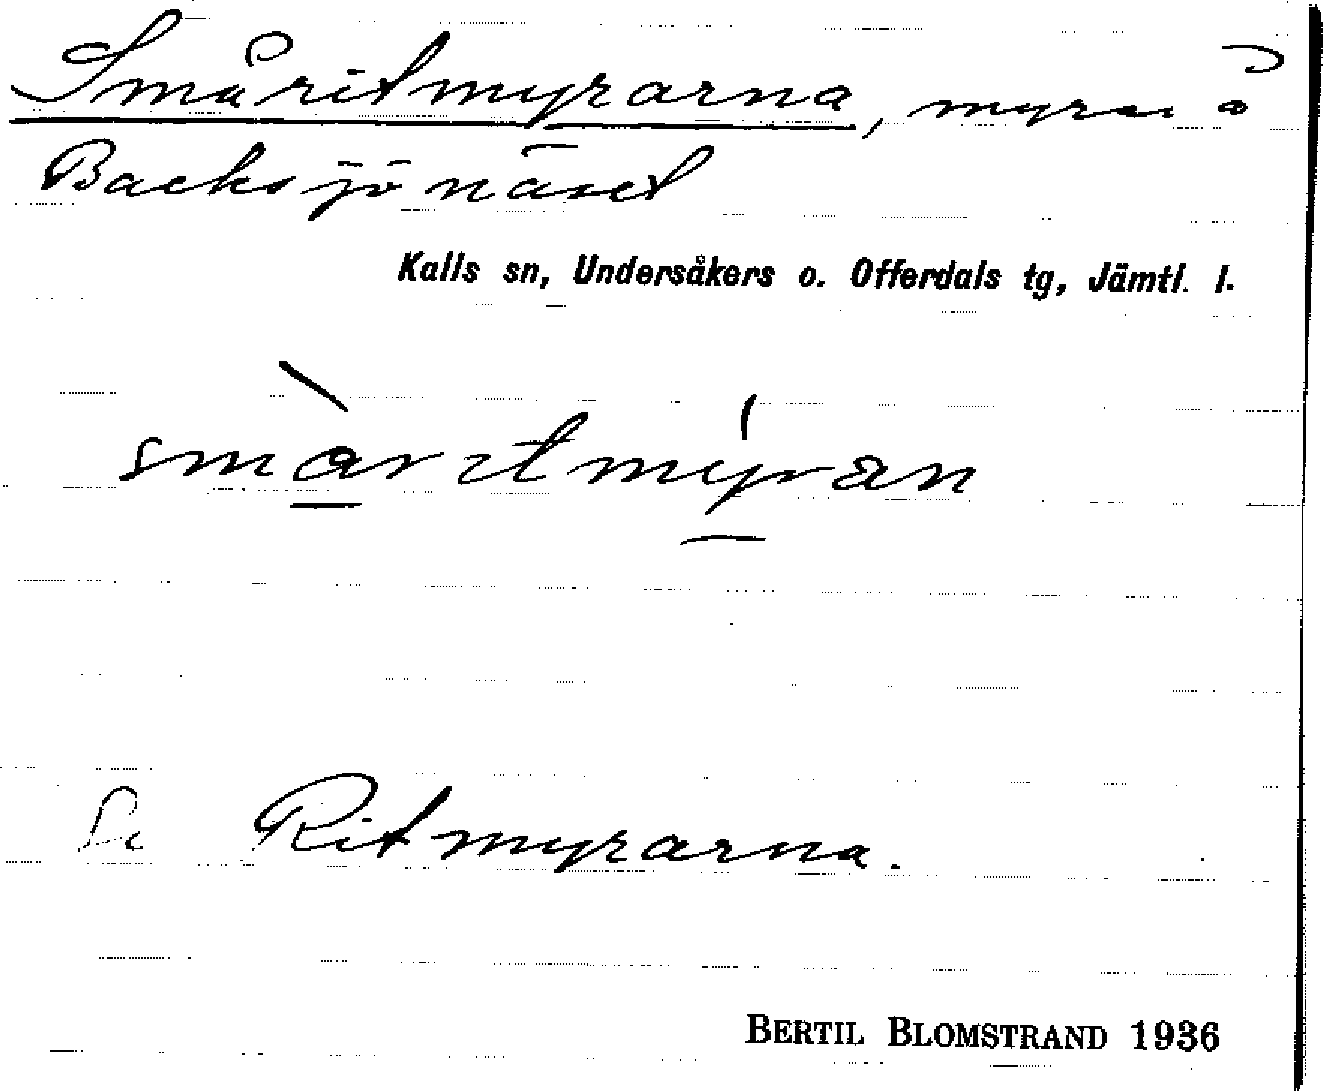 Småritmyrarna, myrar å
Backsjönäset
Kalls sn, Undersåkers o. Offerdals tg, Jämtl. l.
smàritmýran
Se Ritmyrarna.
BERTIL BLOMSTRAND 1936